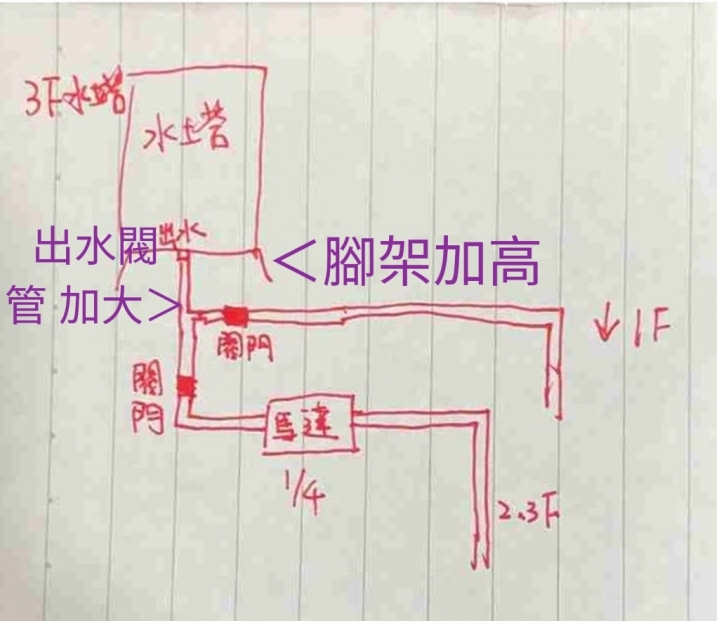 3F水塔
水塔
出水
出水閥
管 加大>
<腳架加高
閥門
↓1F
閥
門
馬達
1/4
2.3F